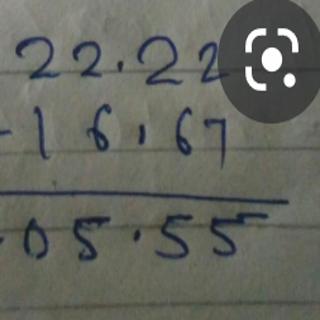 22.22
-16.67
05.55